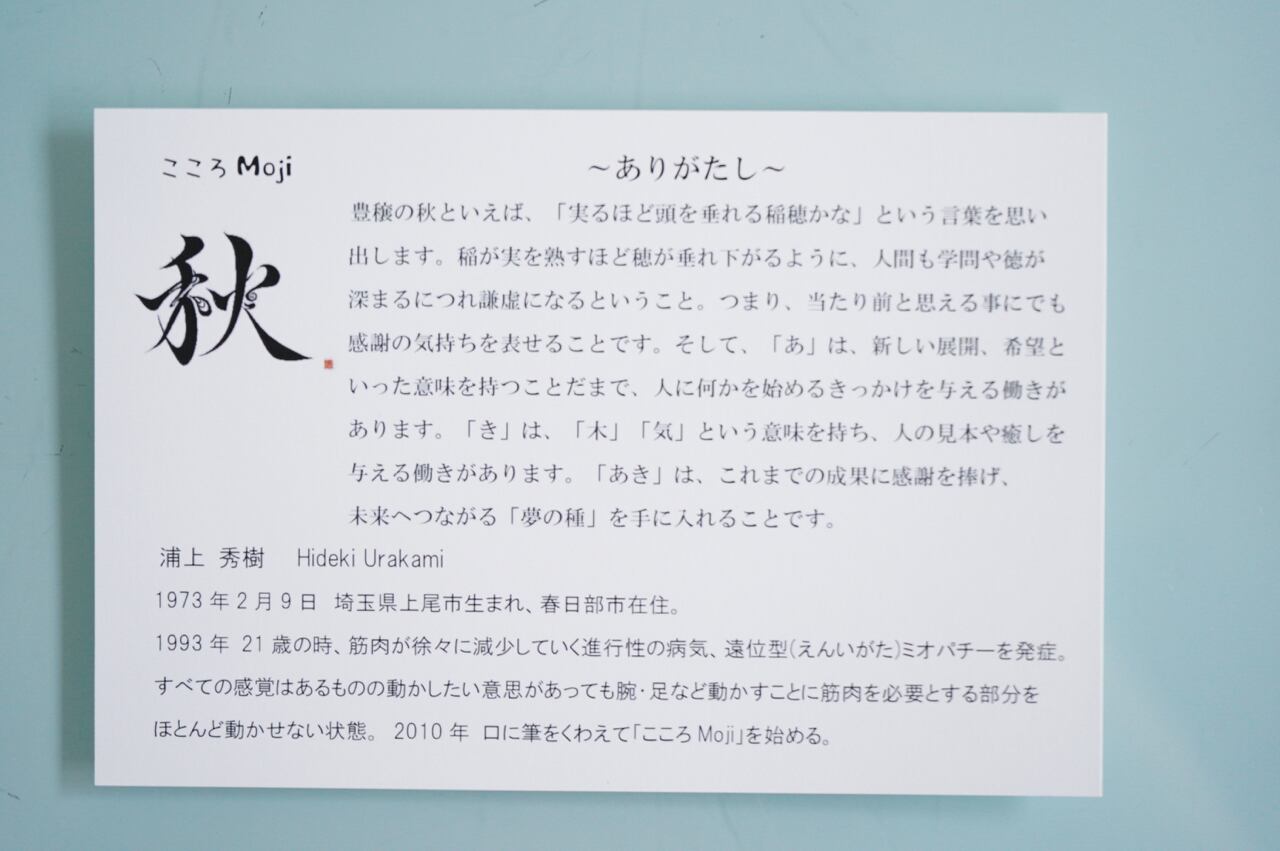 こころMoji
～ありがたし～
秋
豊穣の秋といえば、「実るほど頭を垂れる稲穂かな」という言葉を思い
出します。稲が実を熟すほど穂が垂れ下がるように、人間も学問や徳が
深まるにつれ謙虚になるということ。つまり、当たり前と思える事にでも
感謝の気持ちを表せることです。そして、「あ」は、新しい展開、希望と
いった意味を持つことだまで、人に何かを始めるきっかけを与える働きが
あります。「き」は、「木」「気」という意味を持ち、人の見本や癒しを
与える働きがあります。「あき」は、これまでの成果に感謝を捧げ、
未来へつながる「夢の種」を手に入れることです。
浦上 秀樹 Hideki Urakami
1973年2月9日 埼玉県上尾市生まれ、春日部市在住。
1993年 21歳の時、筋肉が徐々に減少していく進行性の病気、遠位型(えんいがた)ミオパチーを発症。
すべての感覚はあるものの動かしたい意思があっても腕・足など動かすことに筋肉を必要とする部分を
ほとんど動かせない状態。 2010年 口に筆をくわえて｢こころMoji｣を始める。